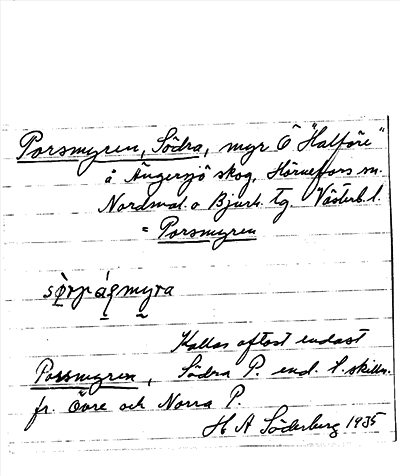 Porsmyren, Södra, myr Ö "Halföre"
å Ängersjö skog, Hörnefors sn.
Nordmal. o Bjurh. tg. Västerb. l.
= Porsmyren
Kallas oftast endast
Porsmyren, Södra P. end. t. skilln.
fr. Övre och Norra P.
H A Söderberg 1935